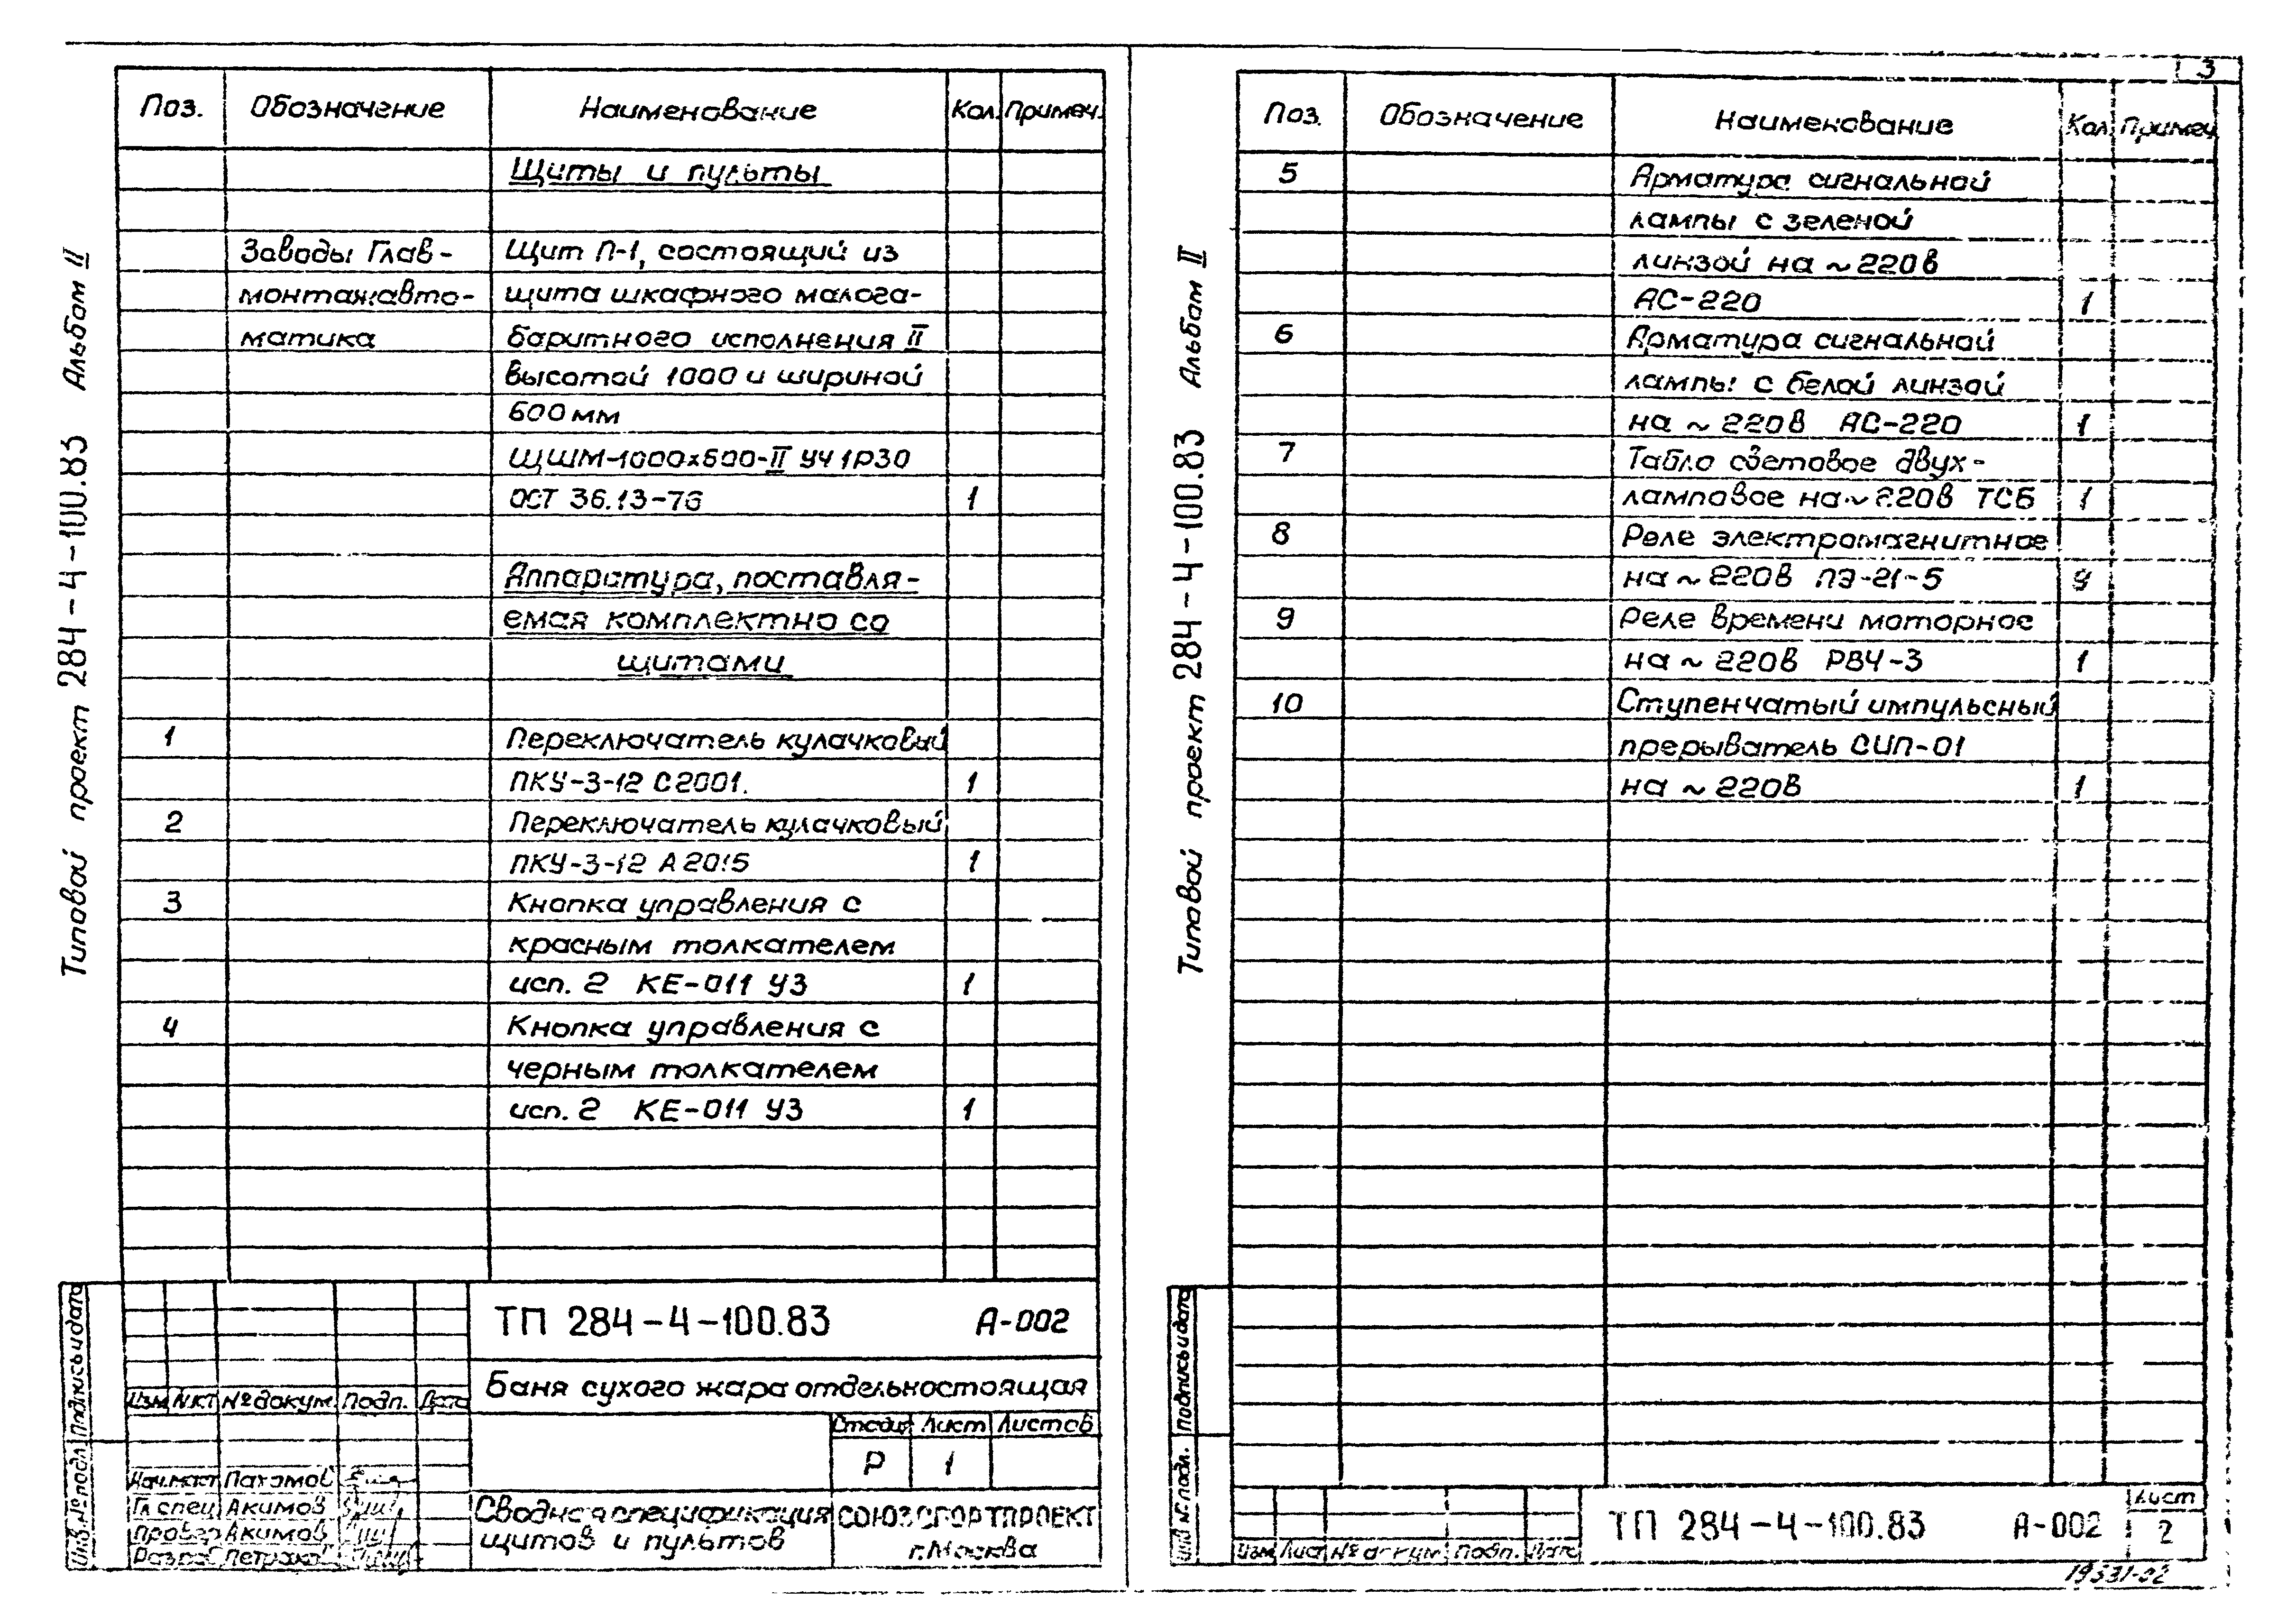 3
Типовой проект 284-4-100.83 Альбом II
Поз. Обозначение Наименование Кол. Примеч.
Щиты и пульты
Заводы Глав- Щит П-1, состоящий из
монтажавто- щита шкафного малога-
матика баритного исполнения II
высотой 1000 и шириной
600 мм
ЩШМ-1000х600-II УЧ 1Р30
ОСТ 36.13-76 1
Аппаратура, поставля-
емая комплектно со
щитами
1 Переключатель кулачковый
ПКУ-3-12 С2001. 1
2 Переключатель кулачковый
ПКУ-3-12 А2015 1
3 Кнопка управления с
красным толкателем
исп. 2 КЕ-011 У3 1
4 Кнопка управления с
черным толкателем
исп. 2 КЕ-011 У3 1
Инв. № подл. Подпись и дата
ТП 284-4-100.83 А-002
Изм Лист № докум. Подп. Дата
Баня сухого жара отдельностоящая
Стадия Лист Листов
Р 1
Нач.маст Пахомов
Гл спец Акимов
Провер Акимов
Разраб
Сводная спецификация
щитов и пультов
СОЮЗСПОРТПРОЕКТ
г. Москва
Типовой проект 284-4-100.83 Альбом II
Поз. Обозначение Наименование Кол. Примеч
5 Арматура сигнальной
лампы с зеленой
линзой на ~220в
АС-220 1
6 Арматура сигнальной
лампы с белой линзой
на ~220в АС-220 1
7 Табло световое двух-
ламповое на ~220в ТСБ 1
8 Реле электромагнитное
на ~220в ПЭ-21-5 9
9 Реле времени моторное
на ~220в РВЧ-3 1
10 Ступенчатый импульсный
прерыватель СИП-01
на ~220в 1
Инв № подл. Подпись и дата
Изм Лист № докум Подп. Дата
ТП 284-4-100.83 А-002
Лист
2
19531-02